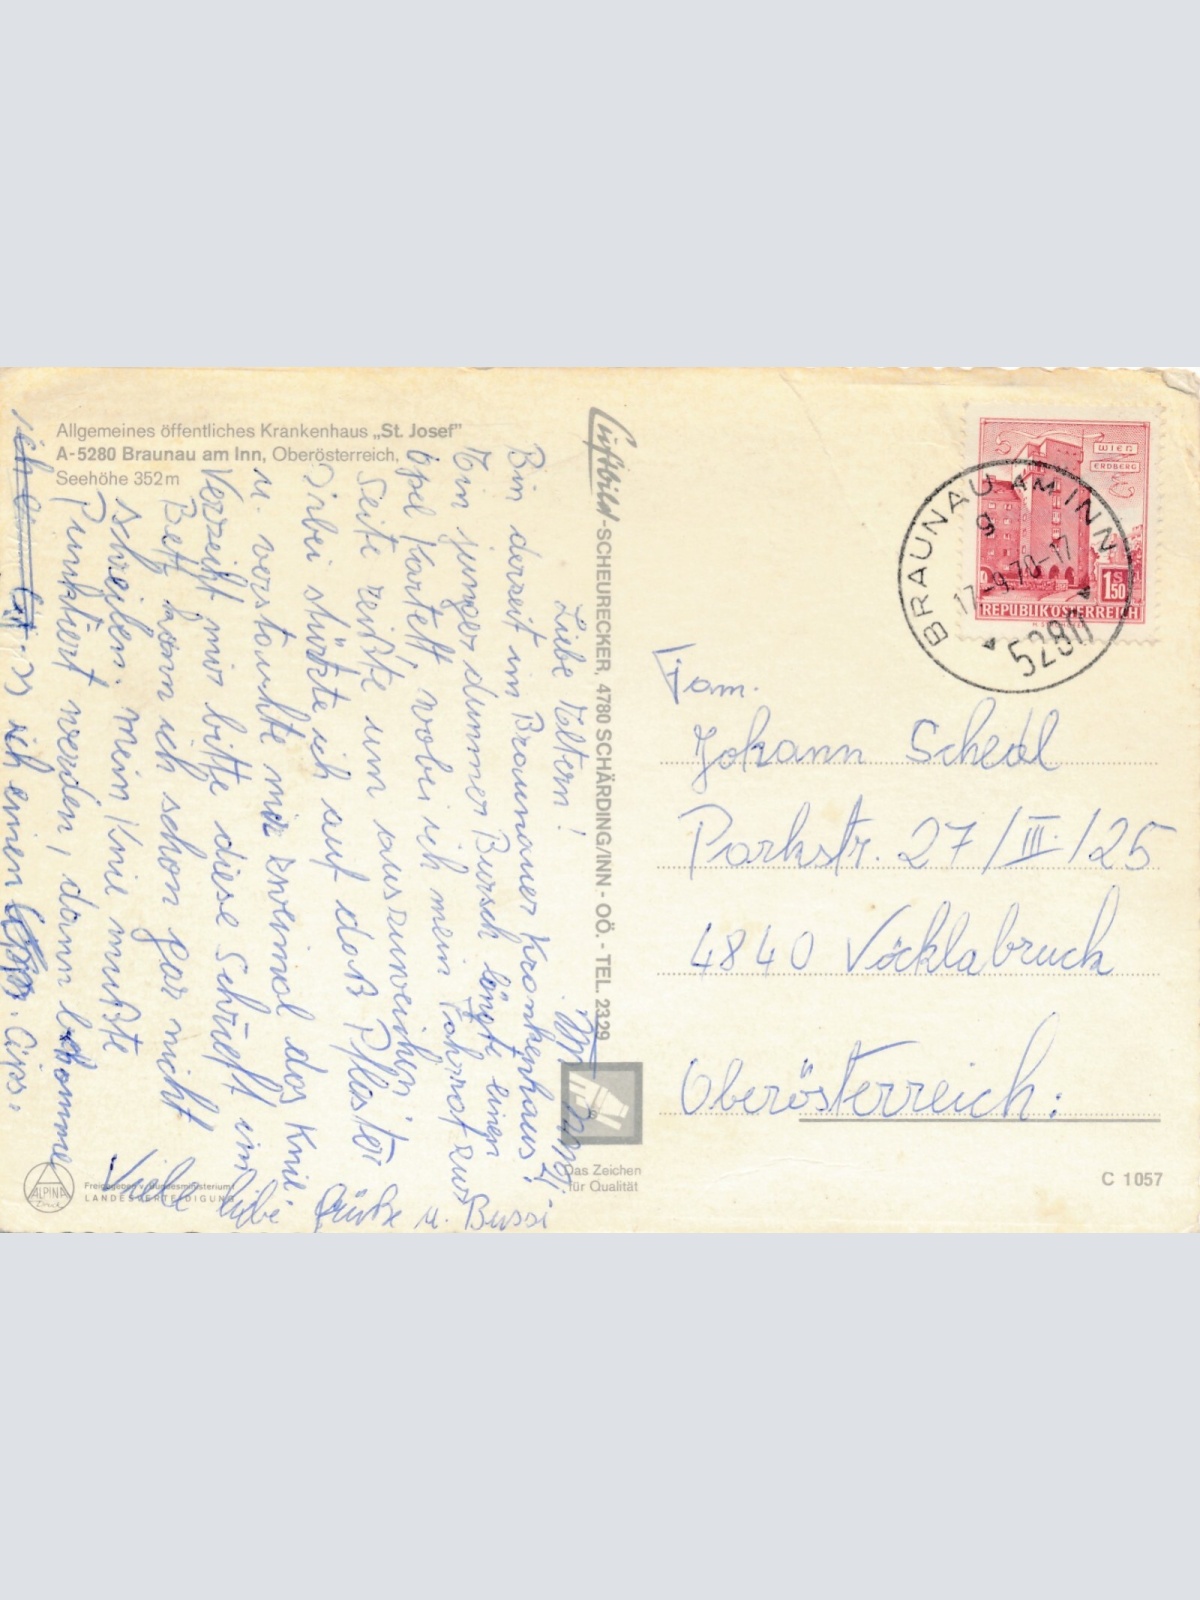 Allgemeines öffentliches Krankenhaus „St. Josef”
A-5280 Braunau am Inn, Oberösterreich,
Seehöhe 352 m
Liebe Eltern!
Bin derzeit im Braunauer Krankenhaus!
Ein junger dummer Bursch lengte einen
Opel Kartett wobei ich mein Fahrrat zur
Seite reißte um auszuweichen.
Dabei stürtzte ich auf daß Pflaster
u. verstauchte mir zweimal das Knie.
Verzeiht mir bitte diese Schrift im
Bett kann ich schon gar nicht
schreiben. Mein Knie mußte
Punktiert werden, dann bekomme
ich einen Gips.
Viele liebe Grüße u. Bussi
Luftbild-SCHEURECKER, 4780 SCHÄRDING/INN - OÖ. - TEL. 2329
Das Zeichen
für Qualität
ALPINA
Druck
Freigegeben v. Bundesministerium f.
LANDESVERTEIDIGUNG
WIEN
ERDBERG
1 S 50
REPUBLIK ÖSTERREICH
BRAUNAU AM INN
g
17.-9.70-17
5280
Fam.
Johann Schedl
Parkstr. 27/III./25
4840 Vöcklabruck
Oberösterreich:
C 1057